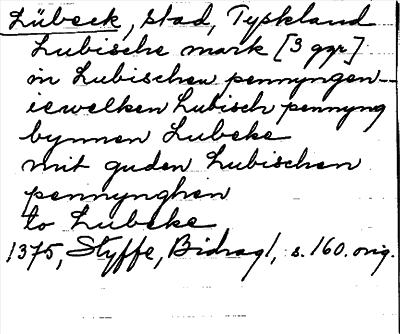 Lübeck, stad, Tyskland
Lubische mark [3 ggr]
in Lubischen pennyngen—
iewelken Lubisch pennyng
bynnen Lubeke
mit guden Lubischen
pennynghen
to Lubeke
1375, Styffe, Bidrag 1, s. 160. orig.